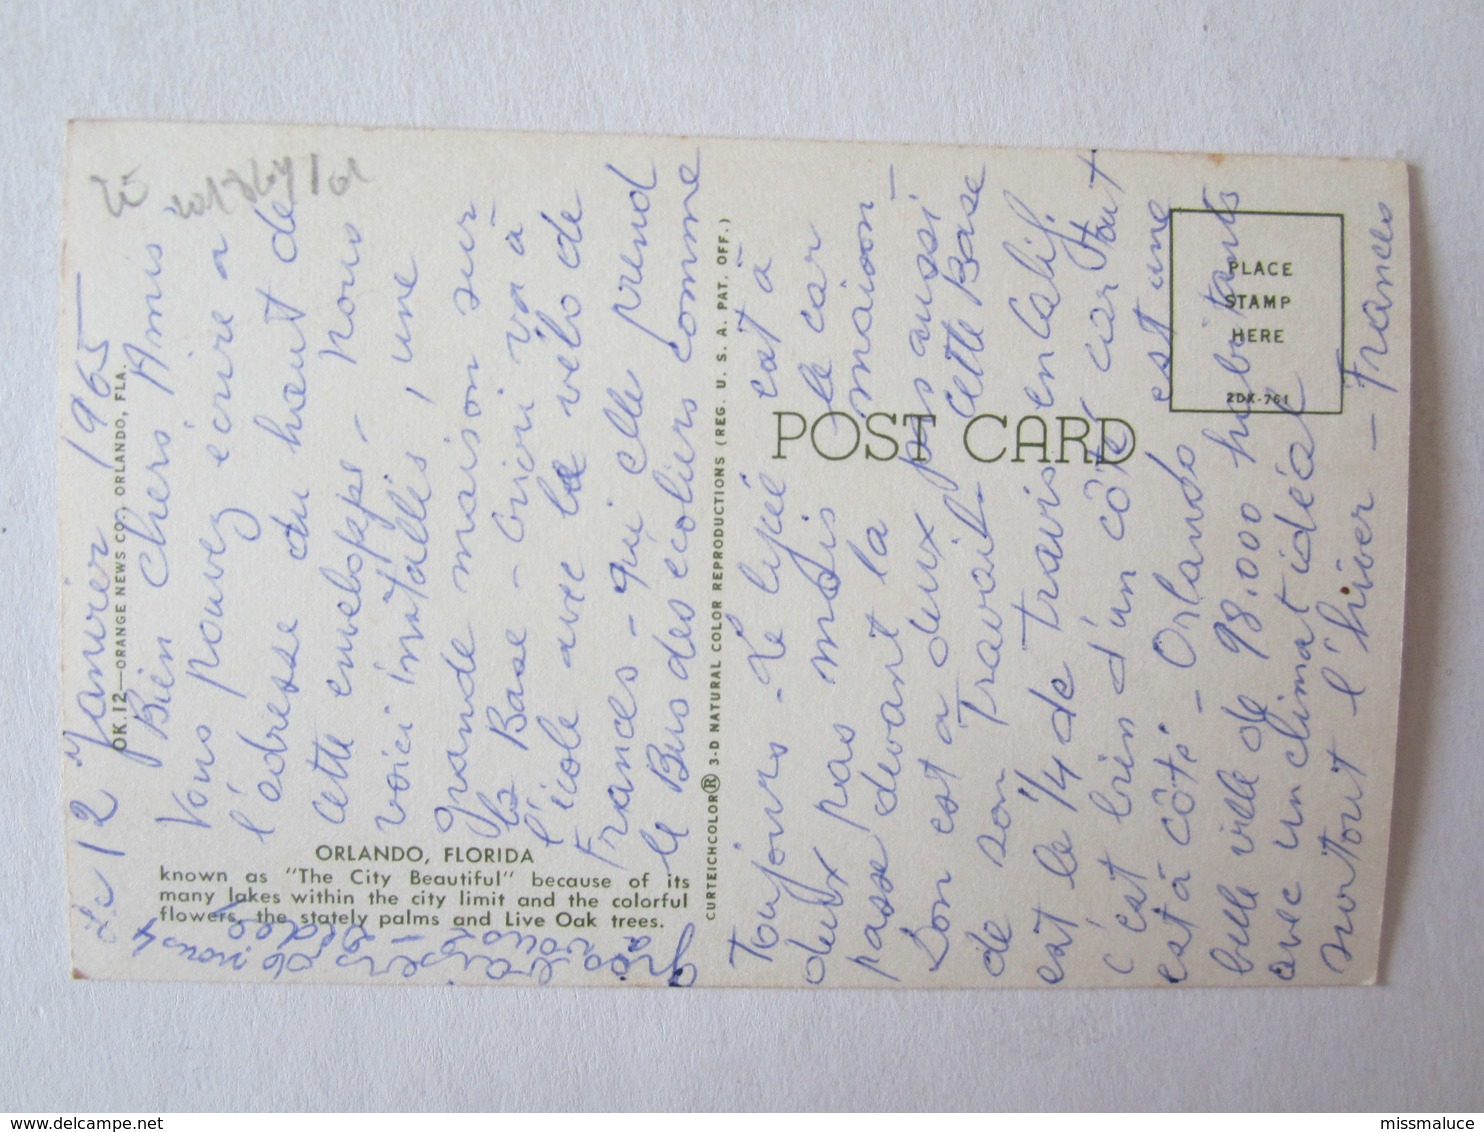 Le 12 Janvier 1965
Bien chers Amis
Vous pouvez ecrire a
l'adresse du haut de
cette enveloppe - nous
voici installés, une
grande maison sur
la Base - Griceri va à
l'école avec le vélo de
Frances - qui elle prend
le Bus des écoliers comme
Toujours - Le lycée est à
deux pas mais le car
passe devant la maison -
Don est a deux pas aussi
de son Travail - cette Base
est le 1/4 de Travis en Calif.
c'est bien d'un côté, car tout
est à côté - Orlando est une
belle ville de 98.000 habitants
avec un climat idéal
surtout l'hiver - Frances
nous 4
ORLANDO, FLORIDA
known as "The City Beautiful" because of its
many lakes within the city limit and the colorful
flowers, the stately palms and Live Oak trees.
OK.12—ORANGE NEWS CO., ORLANDO, FLA.
CURTEICHCOLOR® 3-D NATURAL COLOR REPRODUCTIONS (REG. U. S. A. PAT. OFF.)
POST CARD
PLACE
STAMP
HERE
2DK-761
delcampe.net
missmaluce